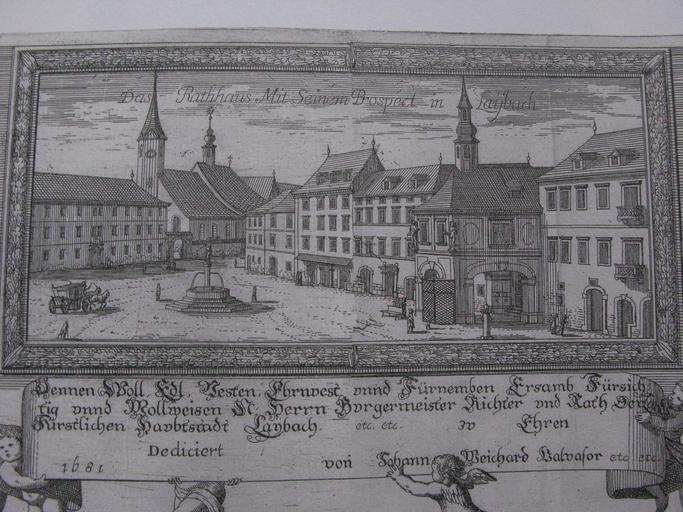 Das Rathhaus Mit Seinem Prospect in Laybach
Dennen Woll Edl, Vesten, Ehrnvest vnnd Fürnemben Ersamb Fürsich
tig vnnd Wollweisen N. Herrn Bvrgermeister Richter vnd Rath Der
Fürstlichen Havbtstadt Laybach. etc. etc. zv Ehren
Dediciert
1681 von Johann Weichard Valvasor etc etc.